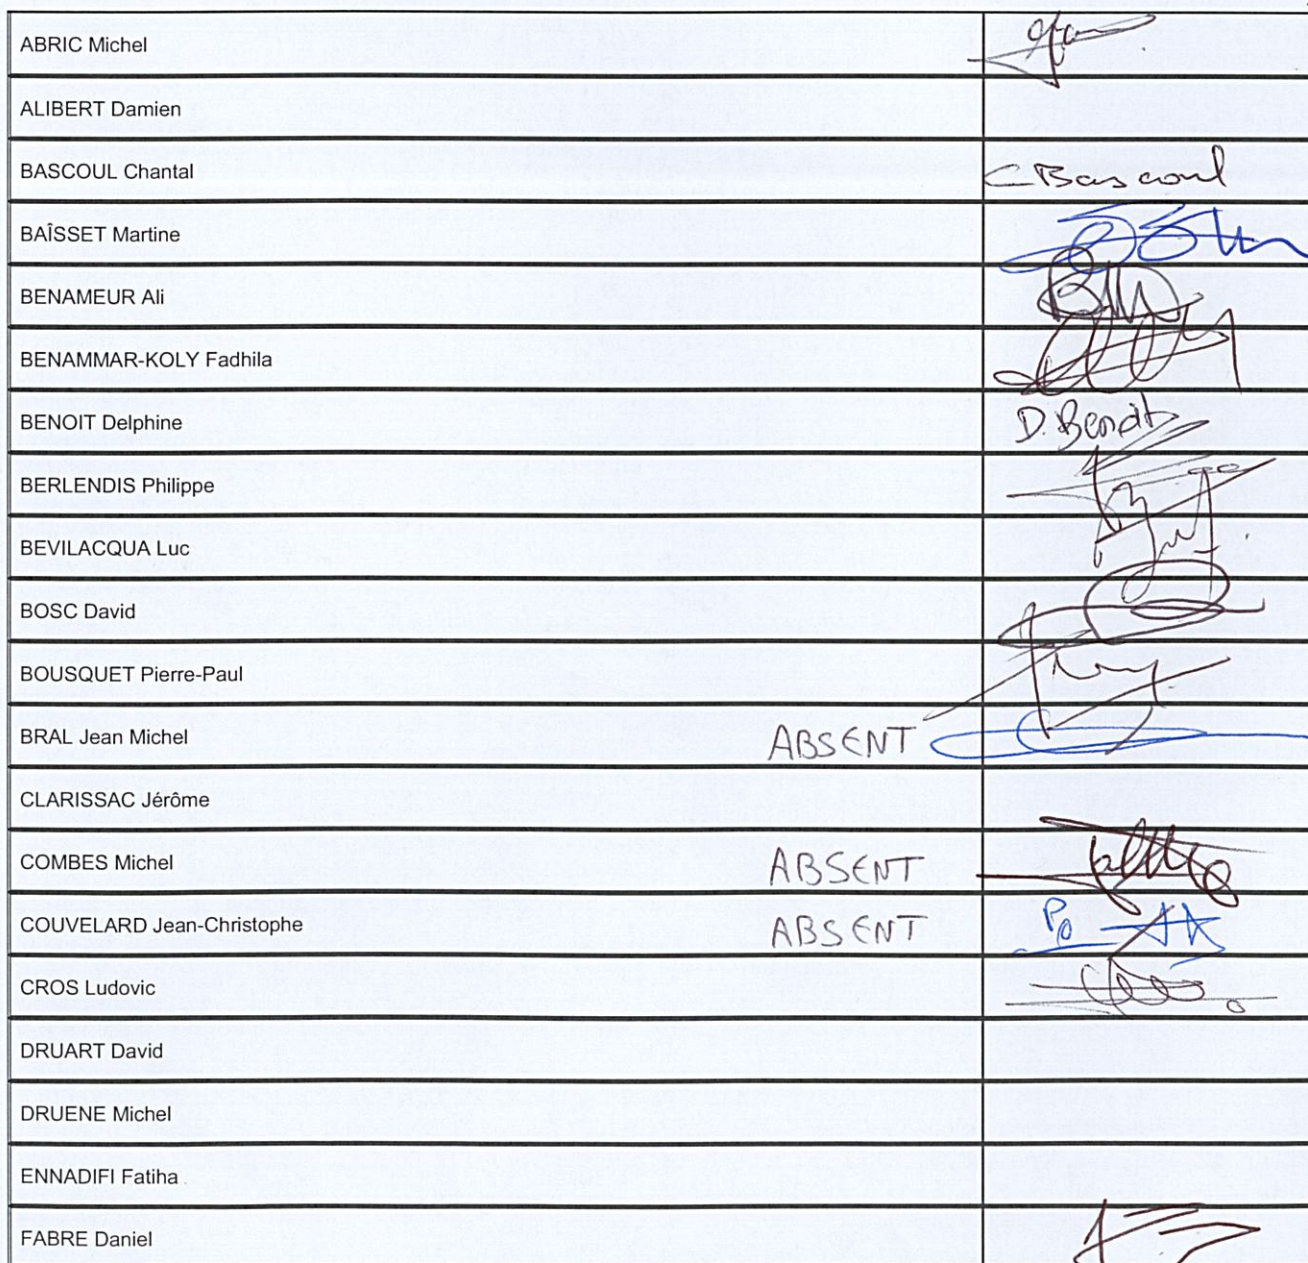 ABRIC Michel
ALIBERT Damien
BASCOUL Chantal Bascoul
BAÎSSET Martine
BENAMEUR Ali
BENAMMAR-KOLY Fadhila
BENOIT Delphine D. Benoit
BERLENDIS Philippe
BEVILACQUA Luc
BOSC David
BOUSQUET Pierre-Paul
BRAL Jean Michel ABSENT
CLARISSAC Jérôme
COMBES Michel ABSENT
COUVELARD Jean-Christophe ABSENT Po
CROS Ludovic
DRUART David
DRUENE Michel
ENNADIFI Fatiha
FABRE Daniel